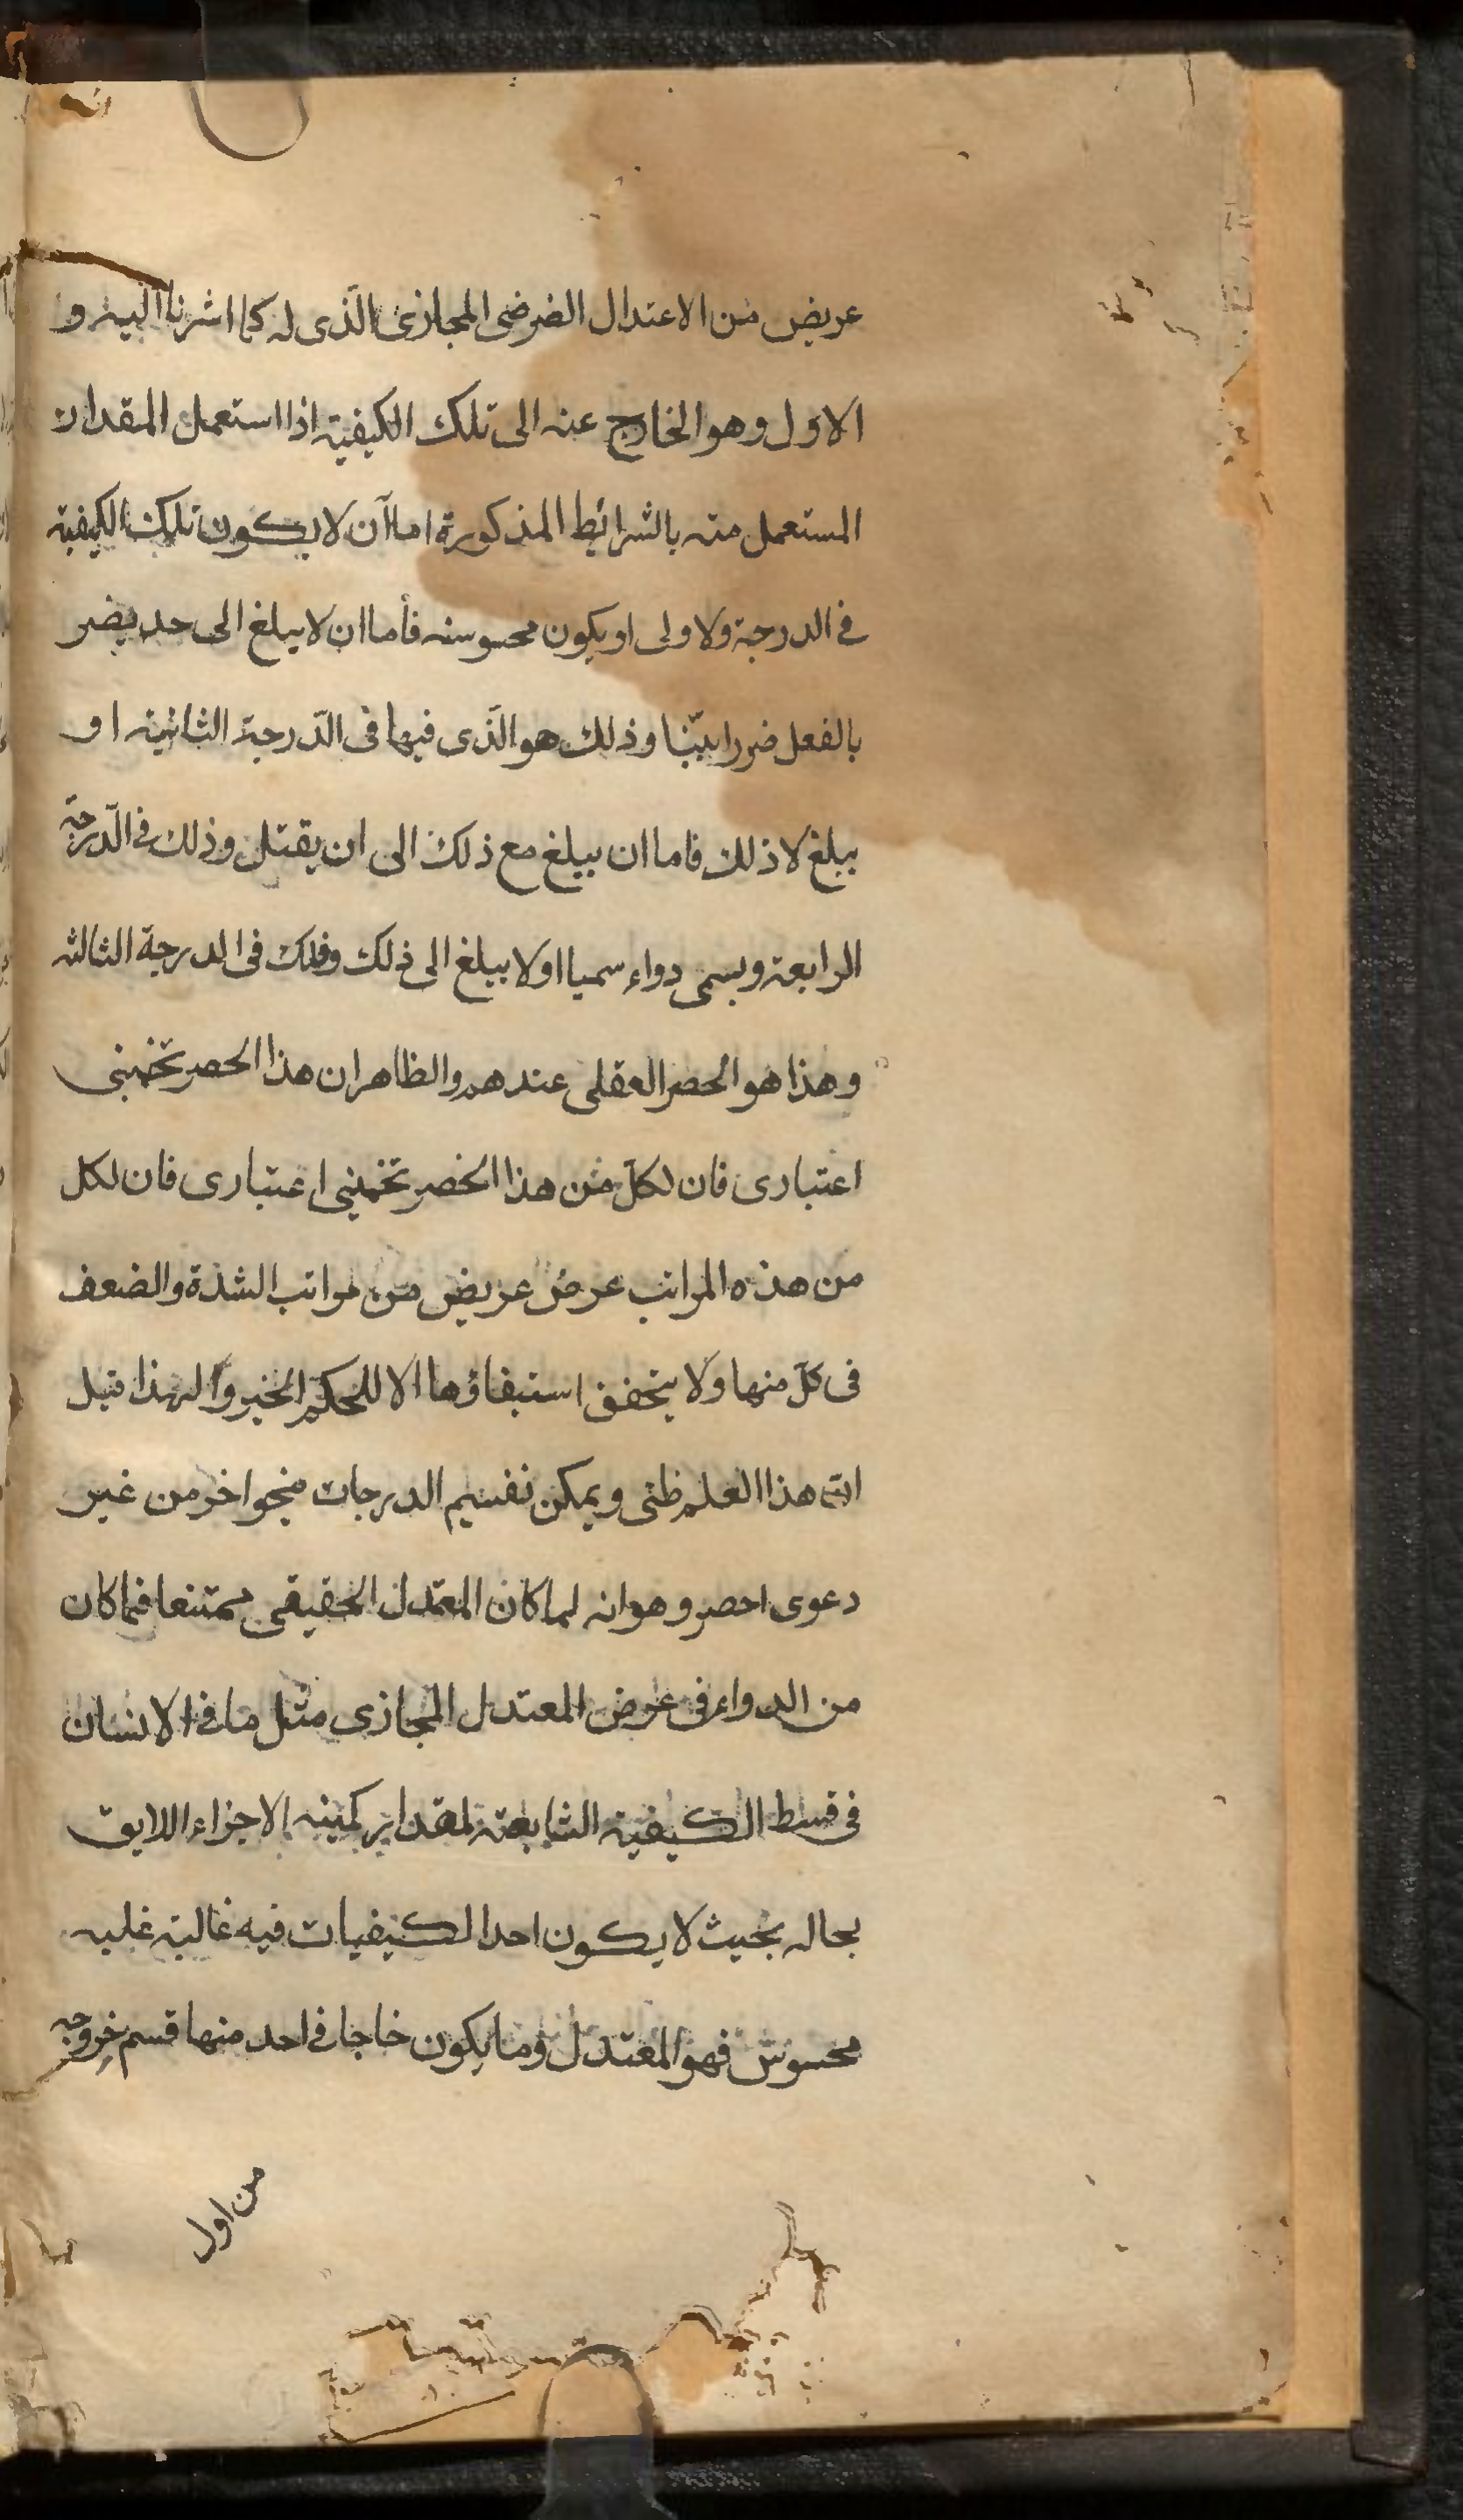 عريض من الاعتدال الفرضى المجازى الّذى له كما اشرنا اليه و
الاول وهو الخارج عنه الى تلك الكيفية اذا استعمل المقدار
المستعمل منه بالشرائيط المذكورة اما آن لا يكون تلك الكيفية
فى الدرجة ولاولى او يكون محسوسه فأما ان لا يبلغ الى حد يضر
بالفعل ضررا بيّنا وذلك هو الّذى فيها فى الدّرجة الثانية او
يبلغ لا ذلك فاما ان يبلغ مع ذلك الى ان يقتل وذلك فى الدّرجة
الرابعة ويسمى دواء سميا اولا يبلغ الى ذلك وذلك فى الدرجة الثالثه
وهذا هو الحصر العقلى عندهم والظاهر ان هذا الحصر تخمينى
اعتبارى فان لكلّ من هذا الحصر تخمينى اعتبارى فان لكل
من هذه المراتب عرض عريض من مراتب الشدة والضعف
فى كلّ منها ولا يتحقق استيفاؤها الا للحكيم الخبير ولهذا قيل
انّ هذا العلم ظنى ويمكن تقسيم الدرجات بنحو اخر من غير
دعوى احصر وهو انه لما كان المعتدل الحقيقى ممتنعا فما كان
من الدواء فى عرض المعتدل المجازى مثل ما فى الانسان
فى قسط الكيفية التابعة لمقدار كمية الاجزاء اللايق
بحاله بحيث لا يكون احد الكيفيات فيه غالبة غلبه
محسوس فهو المعتدل وما يكون خاجا فى احد منها قسم خروجه
من اول